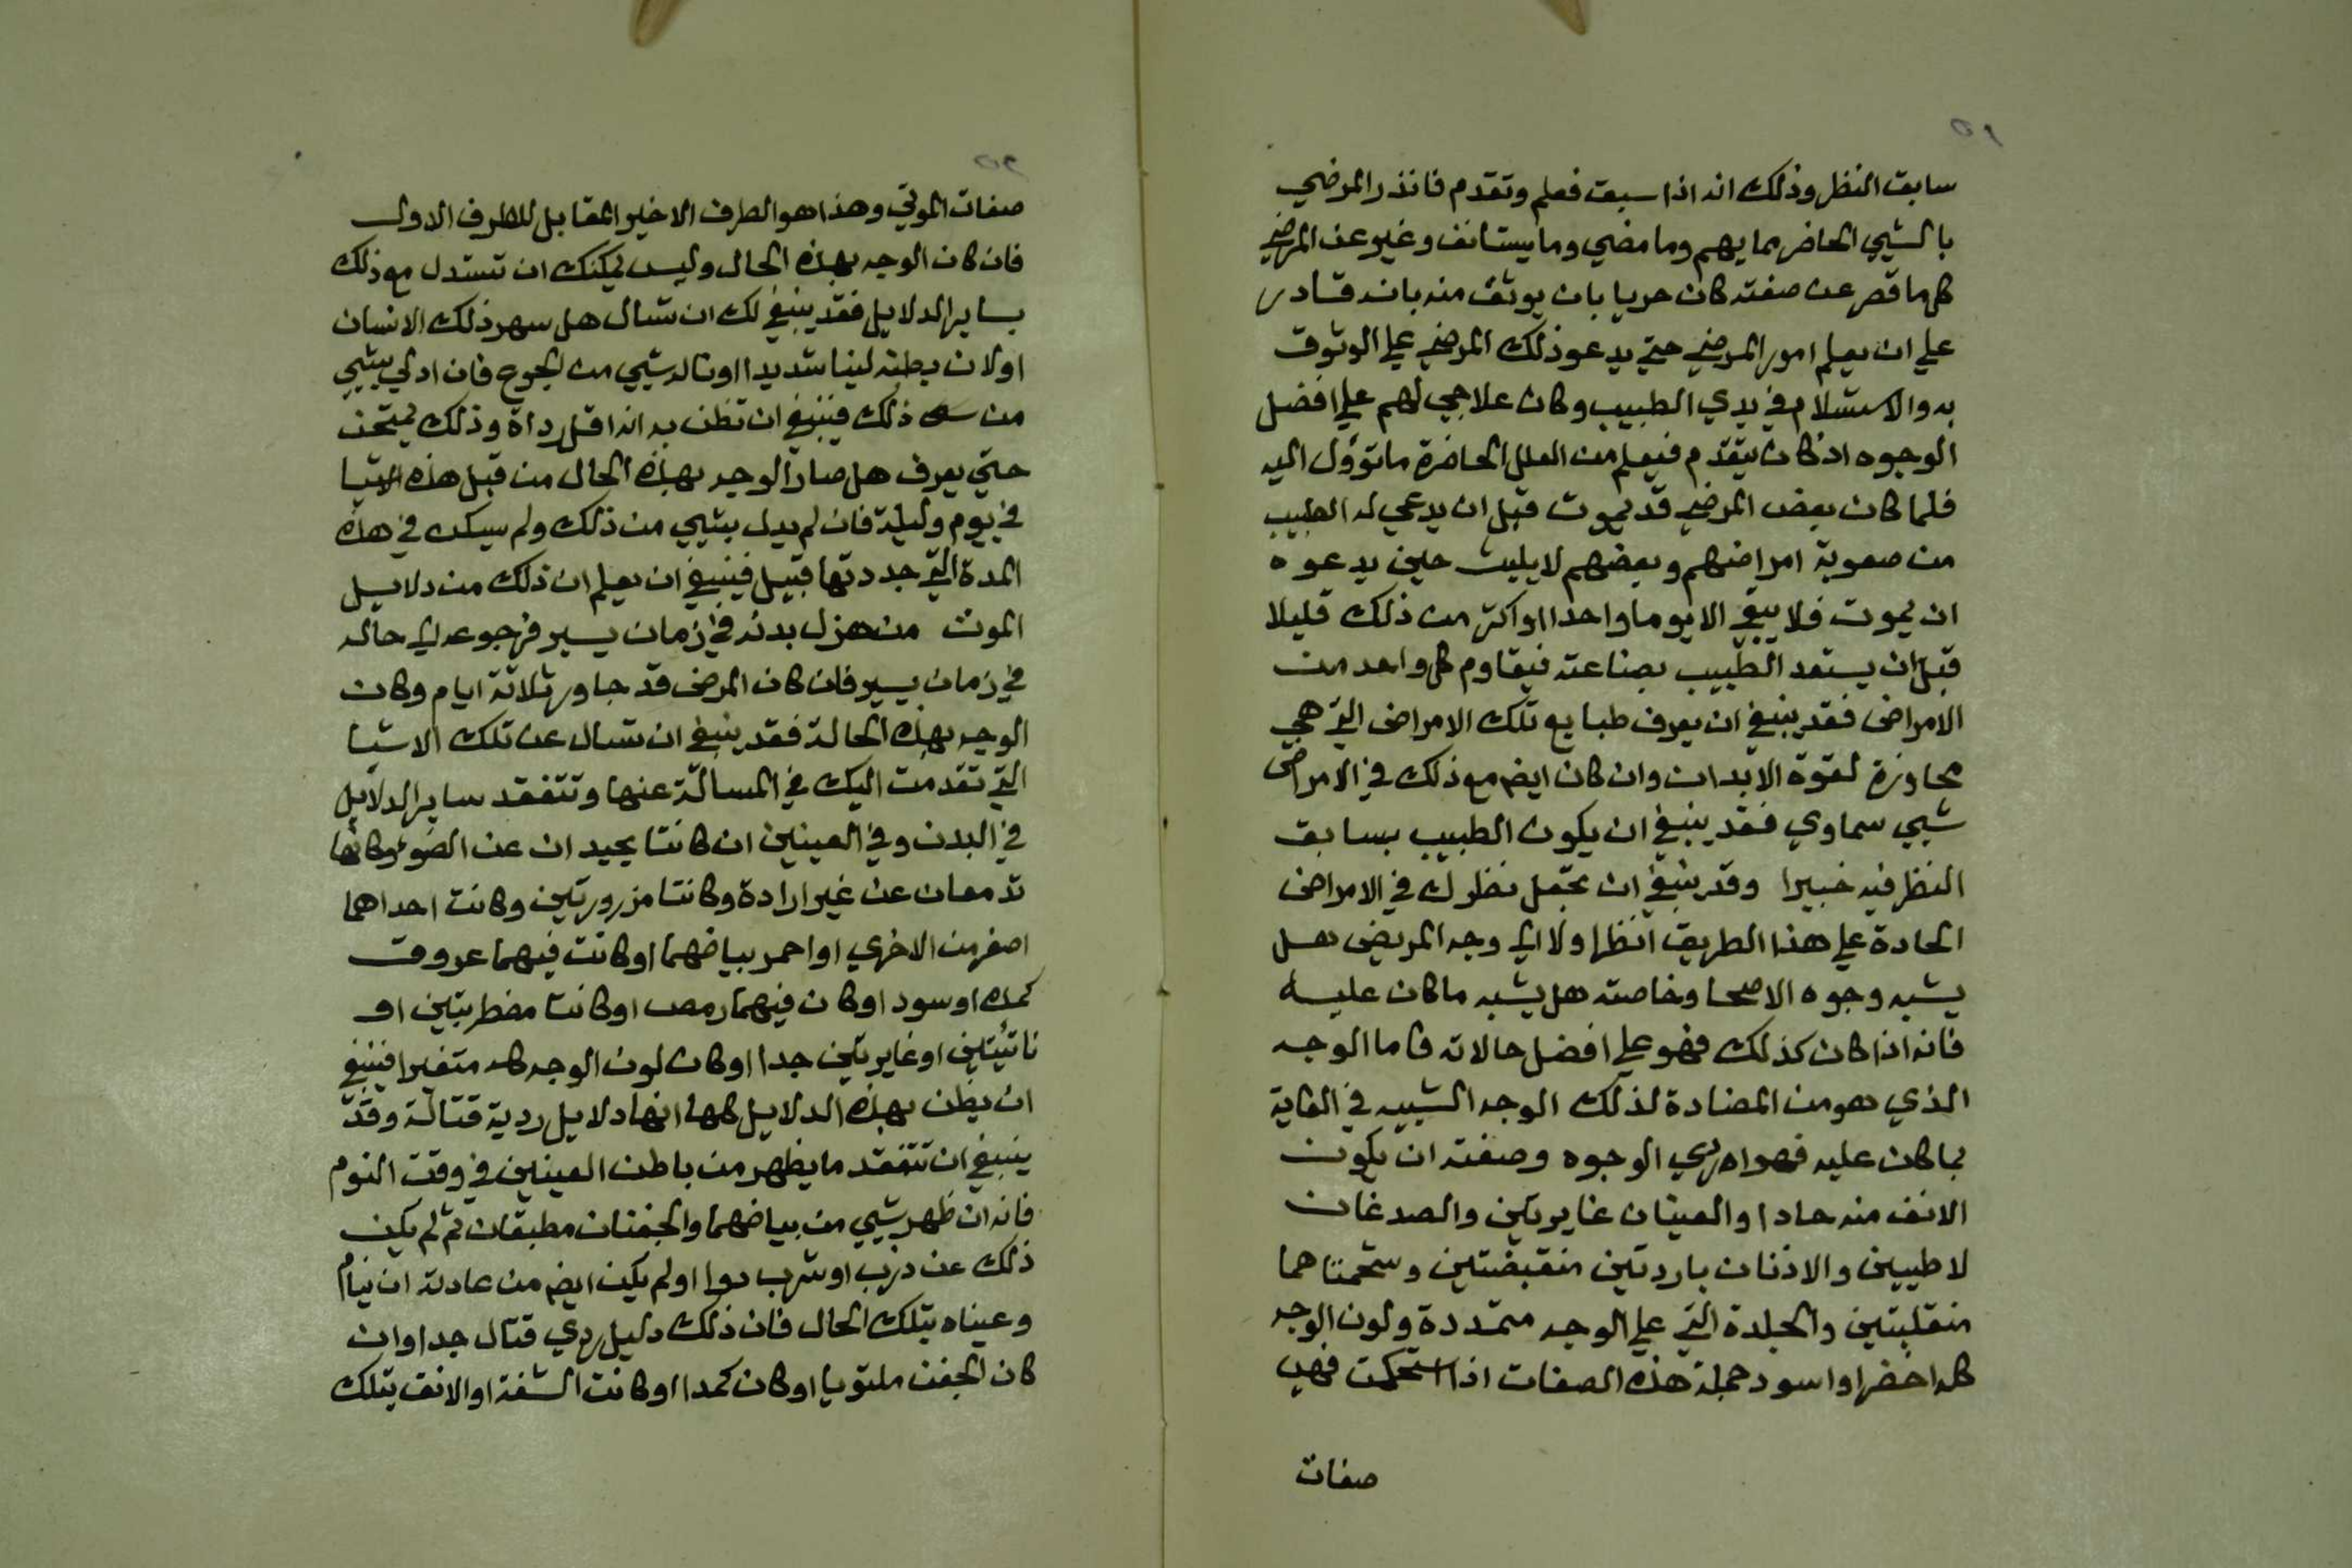 ٥١
سابق النظر وذلك انه اذا سبق فعلم وتقدم فانذر المرضي
بالشيي الحاضر مما بهم وما مضي وما يستانف وغير عن المرضي
كلما قصر عن صفته كان حريا بان يوثق منه بانه قادر
علي ان يعلم امور المرضي حتي يدعو ذلك المرضي علي الوثوق
به والاستسلام في يدي الطبيب وكان علاجي لهم علي افضل
الوجوه اذ كان يتقدم فيعلم من العلل الحاضرة ما توؤل اليه
فلما كان بعض المرضي قد يموت قبل ان يدعي له الطبيب
من صعوبة امراضهم وبعضهم لا يلبث حين يدعوه
ان يموت فلا يبقي الا يوما واحدا او اكثر من ذلك قليلا
قبل ان يستعد الطبيب بصناعته فيقاوم كل واحد من
الامراض فقد ينبغي ان يعرف طبايع تلك الامراض التي هي
مجاوزة لقوة الابدان وان كان ايضر مع ذلك في الامراض
شيي سماوي فقد ينبغي ان يكون الطبيب بسابق
النظر فيه خبيرا وقد ينبغي ان تجعل نظرك في الامراض
الحادة علي هذا الطريق انظر اولا الي وجه المريض هل
يشبه وجوه الاصحا وخاصته هل يشبه ما كان عليه
فانه اذا كان كذلك فهو علي افضل حالاته فاما الوجه
الذي هو من المضادة لذلك الوجه الشبيه في الغاية
بما كان عليه فهو اردي الوجوه وصفته ان يكون
الانف منه حادا والعينان غايرتين والصدغان
لاطيين والاذنان باردتين منقبضتين وشحمتاهما
منقلبتين والجلدة التي علي الوجه متمددة ولون الوجه
كله اخضر او اسود جملة هذه الصفات اذا استحكمت فهي
صفات
٥٢
صفات الموتي وهذا هو الطرف الاخير المقابل للطرف الاول
فان كان الوجه بهذه الحال وليس يمكنك ان تستدل مع ذلك
بساير الدلايل فقد ينبغي لك ان تسال هل سهر ذلك الانسان
او لان بطنه لينا شديدا او ناله شيي من الجوع فان ادلي بشيي
من ذلك فينبغي ان تظن به انه اقل رداة وذلك يمتحن
حتي يعرف هل صار الوجه بهذه الحال من قبل هذه الاشيا
في يوم وليلة فان لم يدل بشيي من ذلك ولم يسكن في هذه
المدة التي حددتها قبيل فينبغي ان يعلم ان ذلك من دلايل
الموت من هزل بدنه في زمان يسير فرجوعه الي حاله
في زمان يسير فان كان المرض قد جاوز ثلاثة ايام وكان
الوجه بهذه الحالة فقد ينبغي ان تسال عن تلك الاشيا
التي تقدمت اليك في المسالة عنها وتتفقد ساير الدلايل
في البدن وفي العينين ان كانتا يحيدان عن الضوء وكانتا
تدمعان عن غير ارادة وكانتا مزرورتين وكانت احداهما
اصغر من الاخري او احمر بياضهما او كانت فيهما عروق
كمدة او سود او كان فيهما رمص او كانتا مضطربتين او
ناتيتين او غايرتين جدا او كان لون الوجه كله متغيرا فينبغي
ان يظن بهذه الدلايل كلها انها دلايل ردية قتالة وقد
ينبغي ان تتفقد ما يظهر من باطن العينين في وقت النوم
فانه ان ظهر شيي من بياضهما والجفنان مطبقان ثم لم يكن
ذلك عن ذرب او شرب دوا او لم يكن ايضر من عادته ان ينام
وعيناه بتلك الحال فان ذلك دليل ردي قتال جدا وان
كان الجفن ملتويا او كان كمدا او كانت الشفة او الانف بتلك